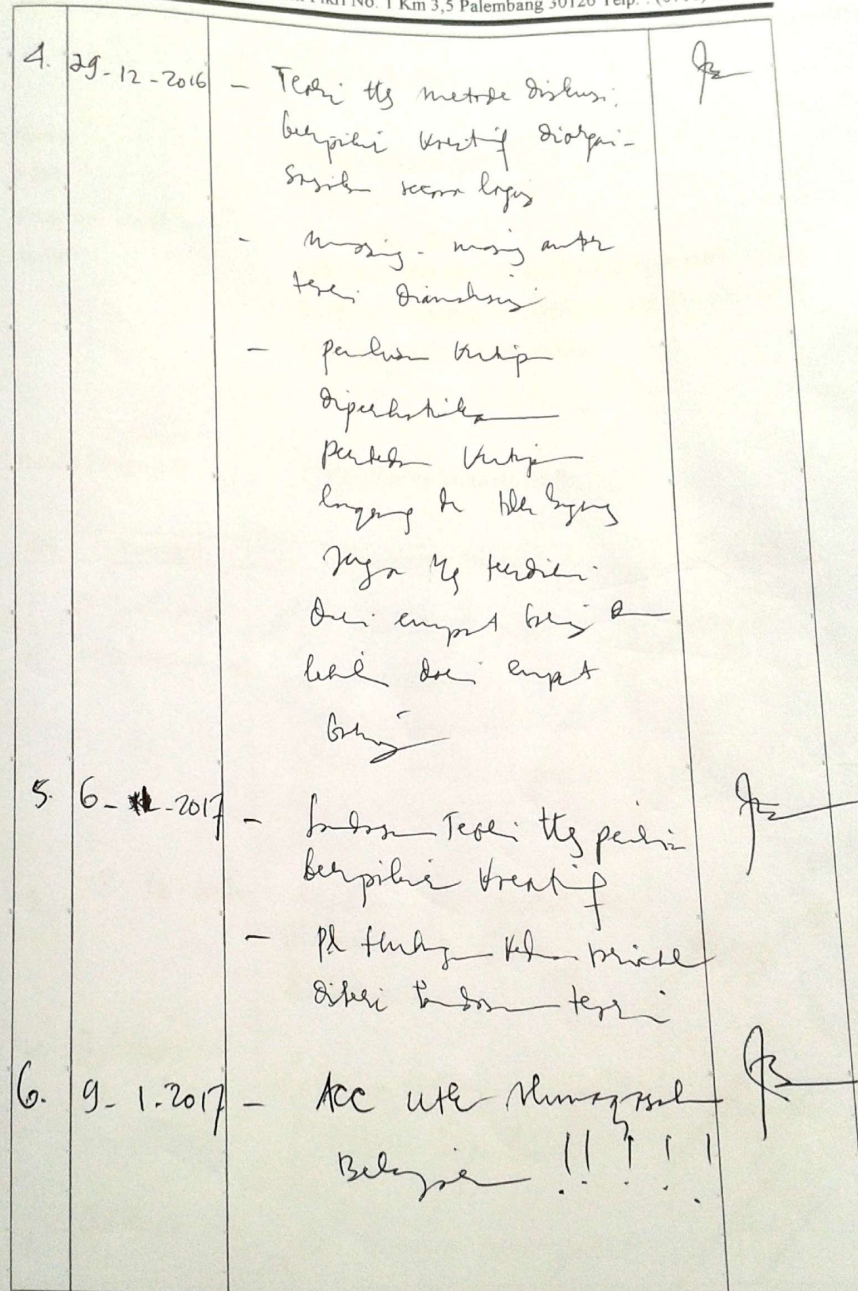 No. 1 Km 3,5 Palembang 30126 Telp. :
4. 29-12-2016 - Teori ttg metode diskusi,
berpikir kreatif diorgani-
sasikan secara logis
- masing-masing antr
teori dianalisis
- penulisan kutipan
diperhatikan
perbedaan kutipan
langsung dan tdk langsung
juga yg terdiri
dari empat baris dan
lebih dari empat
baris
5. 6- -2017 - Landasan Teori ttg
berpikir kreatif
- variabel
diberi landasan teori
6. 9-1.2017 - ACC utk Munaqasah
Belajar !!!!!